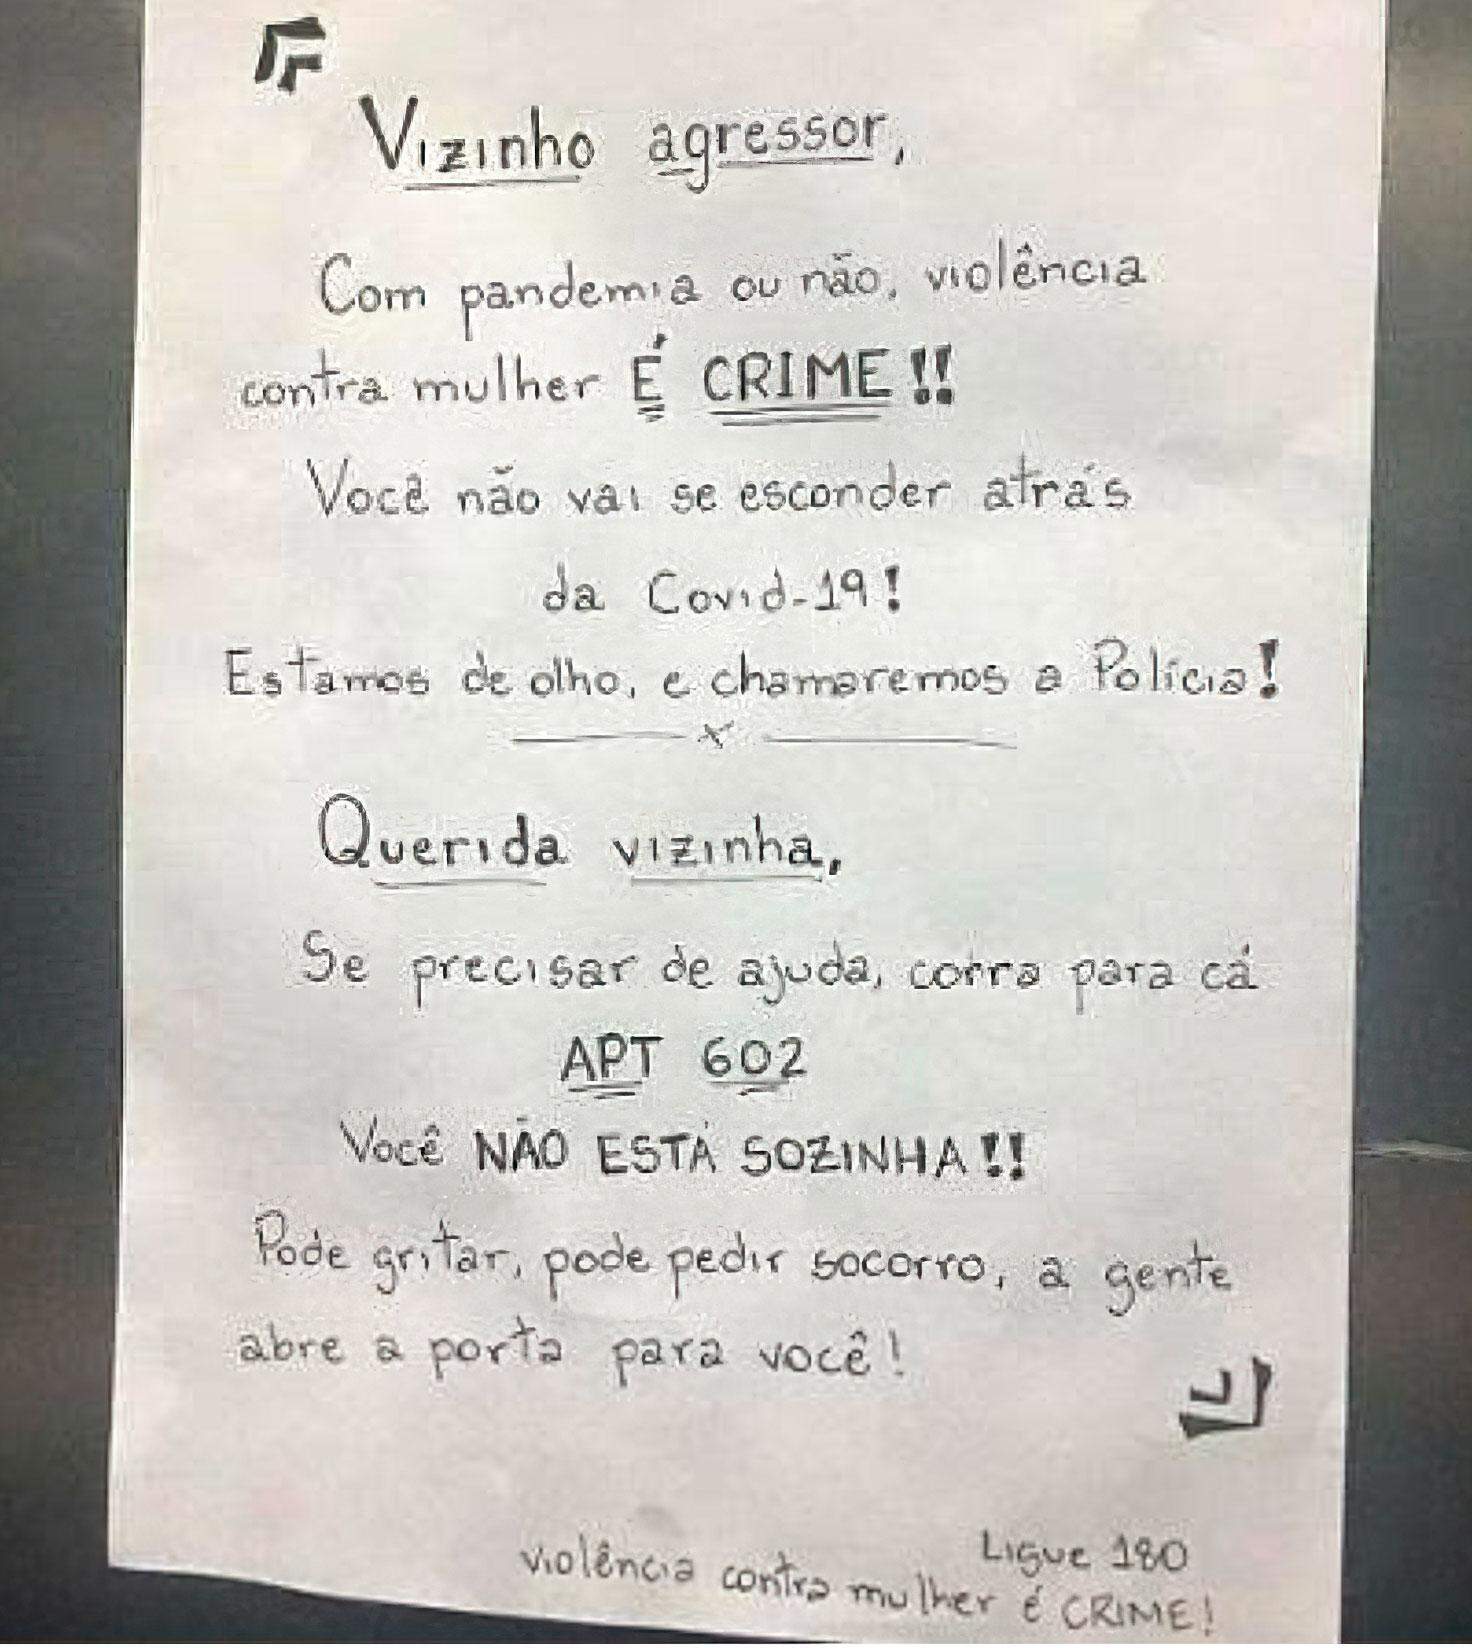 Vizinho agressor,
Com pandemia ou não, violência
contra mulher É CRIME!!
Você não vai se esconder atrás
da Covid-19!
Estamos de olho, e chamaremos a Polícia!
x
Querida vizinha,
Se precisar de ajuda, corra para cá
APT 602
Você NÃO ESTÁ SOZINHA!!
Pode gritar, pode pedir socorro, a gente
abre a porta para você!
Ligue 180
violência contra mulher é CRIME!